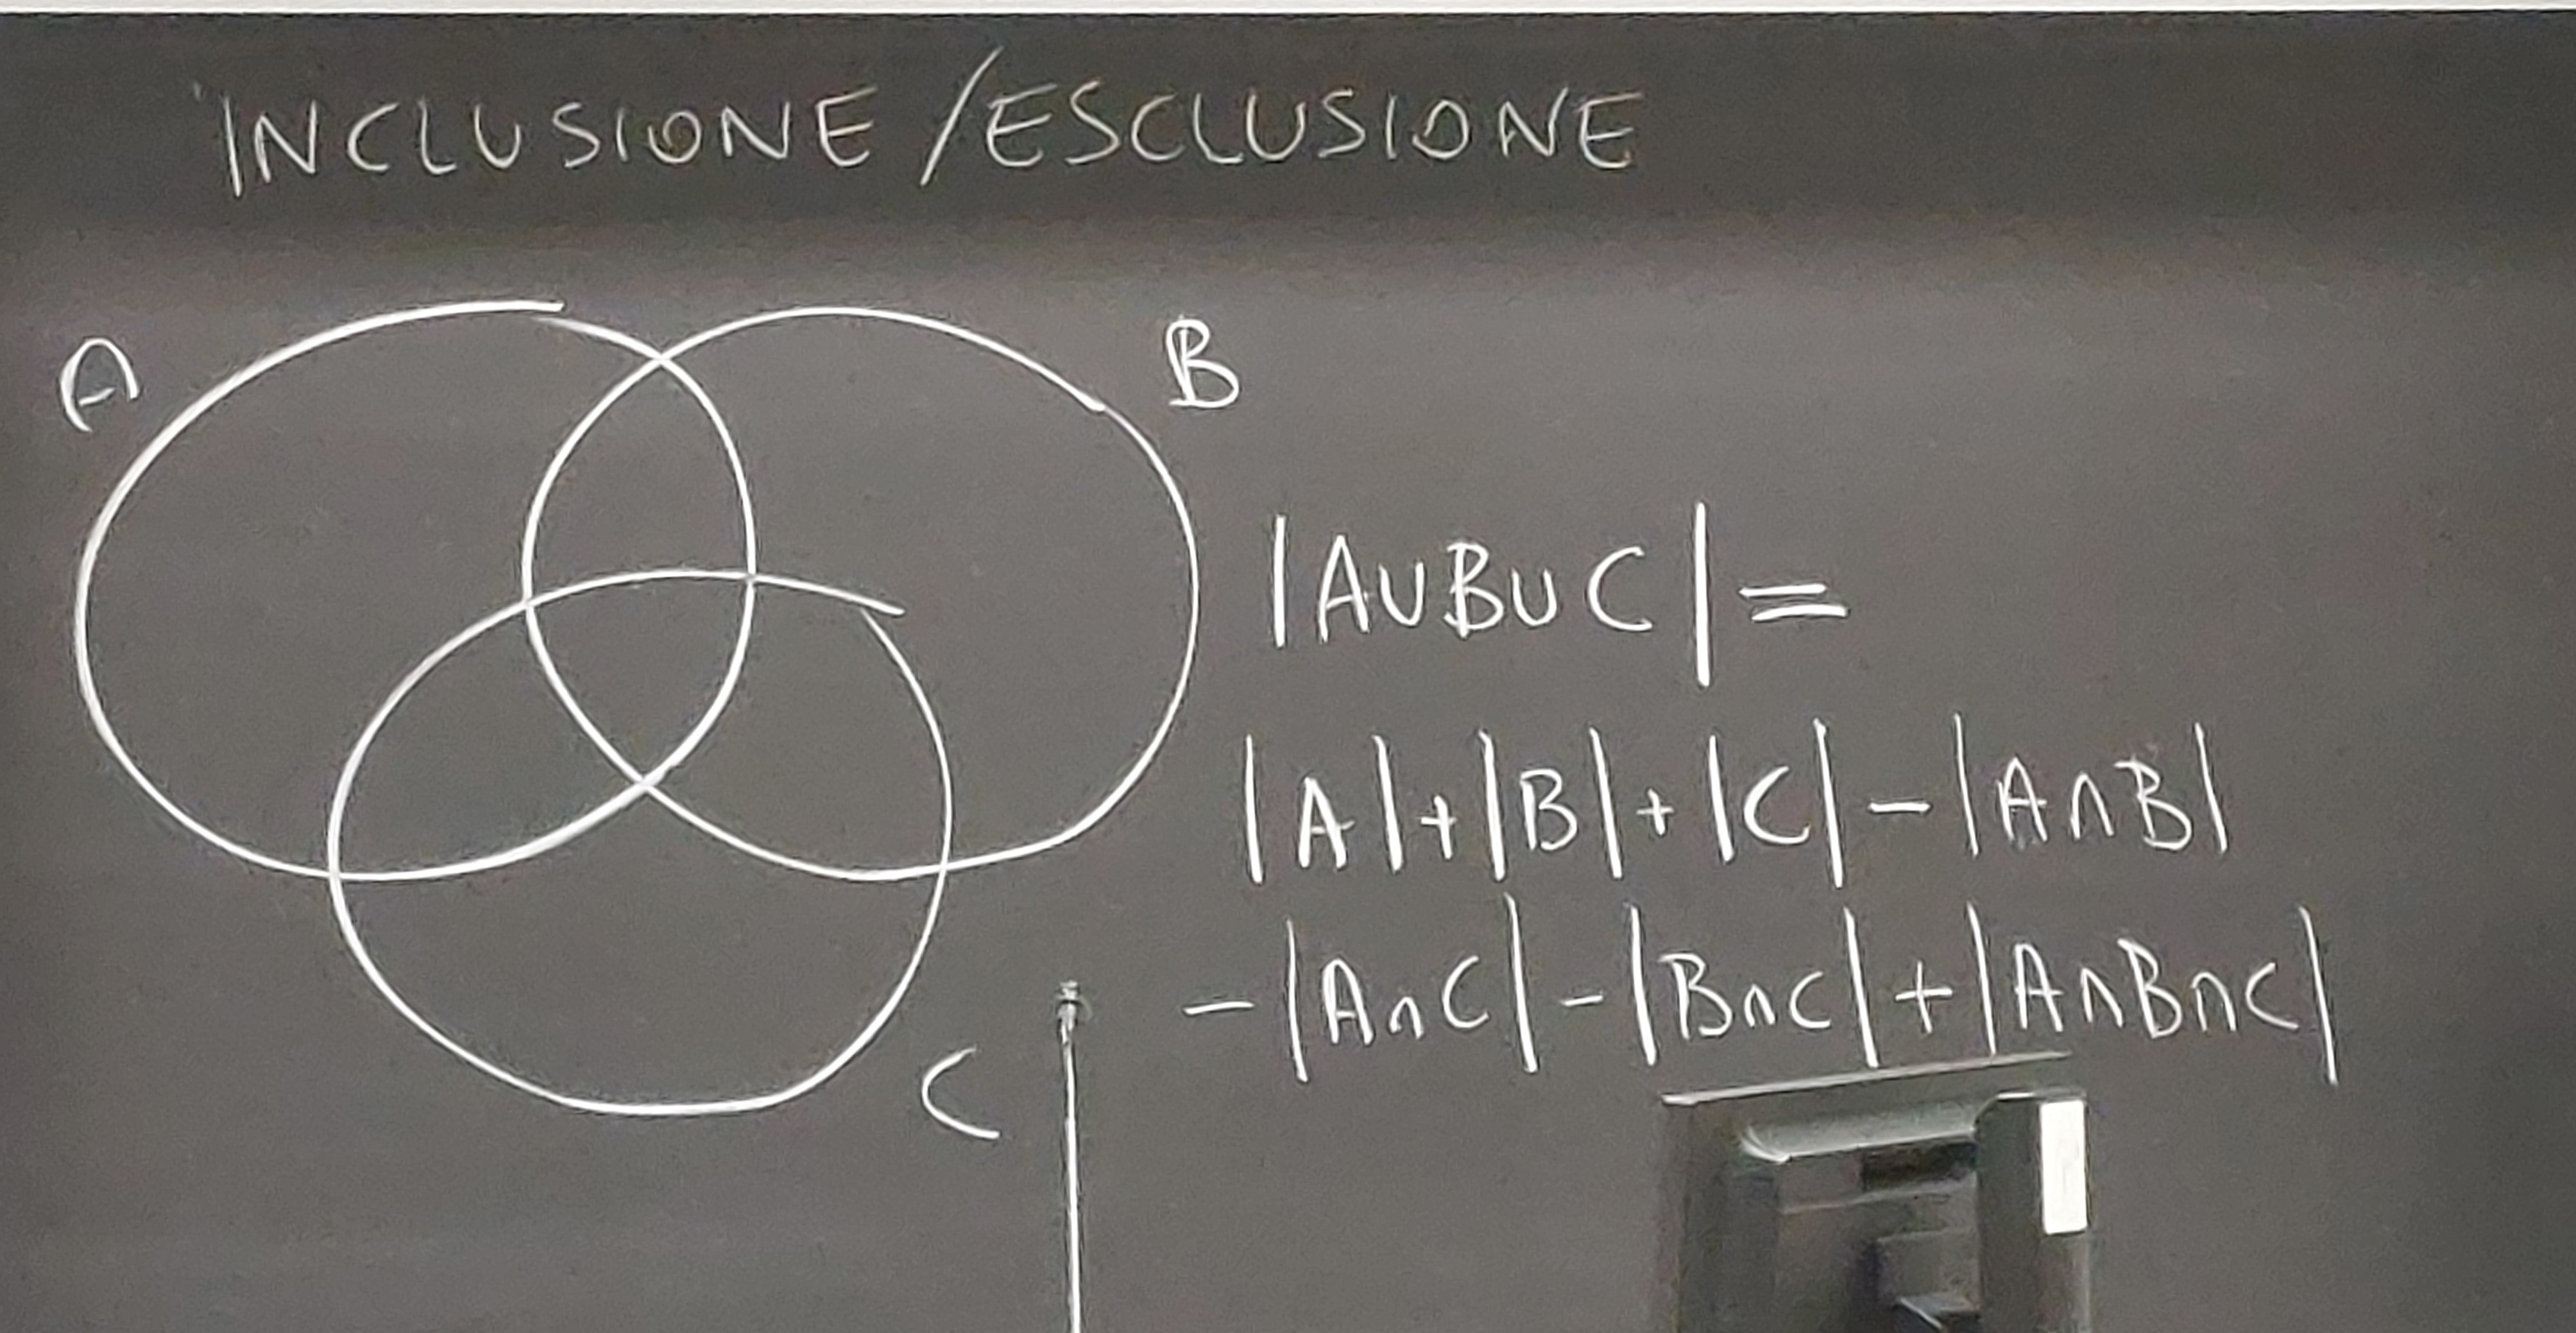 INCLUSIONE/ESCLUSIONE
A
B
|A∪B∪C|=
|A|+|B|+|C|-|A∩B|
-|A∩C|-|B∩C|+|A∩B∩C|
C